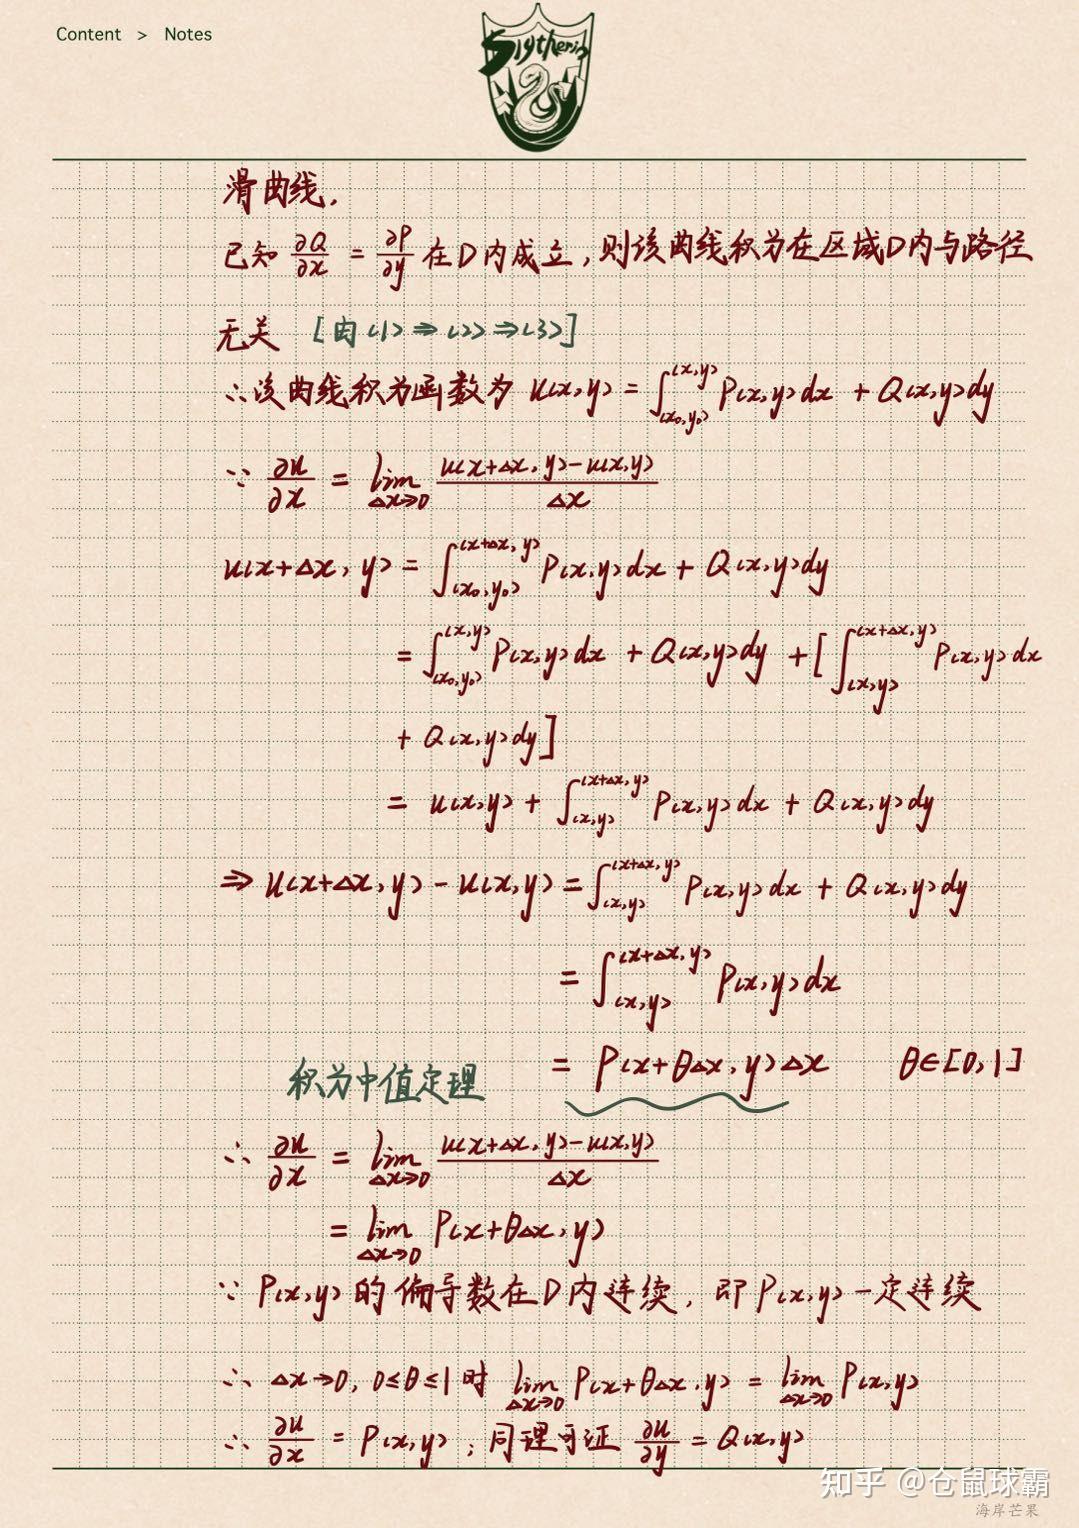 Content > Notes
Slytherin
滑曲线.
已知 ∂Q/∂x = ∂P/∂y 在D内成立,则该曲线积分在区域D内与路径
无关 [由(1)⇒(2)⇒(3)]
∴该曲线积分函数为 u(x,y) = ∫_(x₀,y₀)^(x,y) P(x,y)dx + Q(x,y)dy
∵ ∂u/∂x = lim_(Δx→0) (u(x+Δx,y)-u(x,y))/Δx
u(x+Δx,y) = ∫_(x₀,y₀)^(x+Δx,y) P(x,y)dx + Q(x,y)dy
= ∫_(x₀,y₀)^(x,y) P(x,y)dx + Q(x,y)dy + [∫_(x,y)^(x+Δx,y) P(x,y)dx
+ Q(x,y)dy]
= u(x,y) + ∫_(x,y)^(x+Δx,y) P(x,y)dx + Q(x,y)dy
⇒ u(x+Δx,y) - u(x,y) = ∫_(x,y)^(x+Δx,y) P(x,y)dx + Q(x,y)dy
= ∫_(x,y)^(x+Δx,y) P(x,y)dx
积分中值定理 = P(x+θΔx,y)Δx θ∈[0,1]
∴ ∂u/∂x = lim_(Δx→0) (u(x+Δx,y)-u(x,y))/Δx
= lim_(Δx→0) P(x+θΔx,y)
∵ P(x,y)的偏导数在D内连续,即P(x,y)一定连续
∴ Δx→0, 0≤θ≤1时 lim_(Δx→0) P(x+θΔx,y) = lim_(Δx→0) P(x,y)
∴ ∂u/∂x = P(x,y);同理可证 ∂u/∂y = Q(x,y)
知乎 @仓鼠球霸
海岸芒果